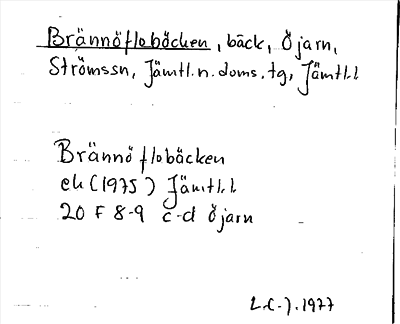 Brännöflobäcken, bäck, Öjarn,
Strömssn, Jämtl. n. doms. tg, Jämtl. l
Brännöflobäcken
ek (1975) Jämtl. l
20 F 8-9 c-d Öjarn
1977